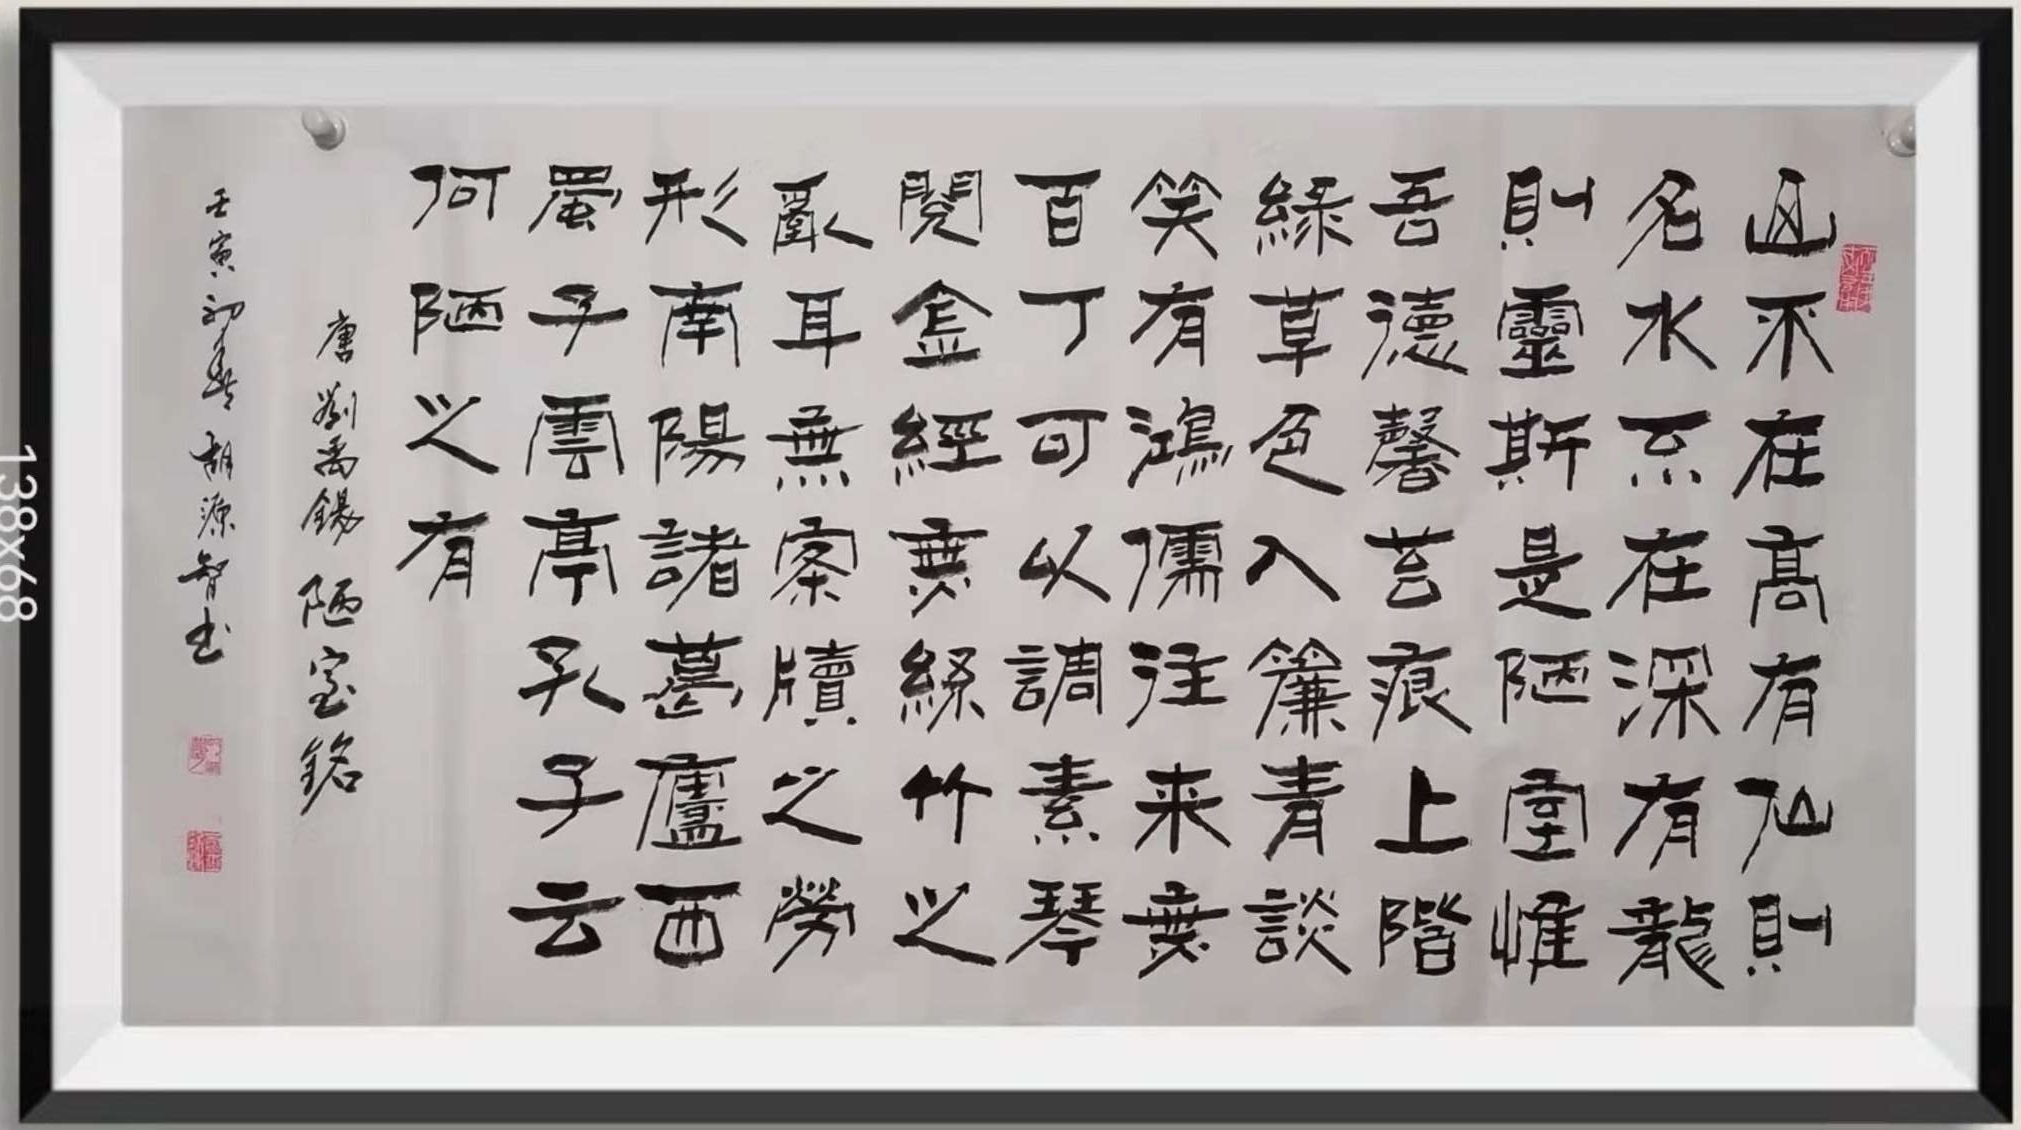 山不在高有仙則
名水不在深有龍
則靈斯是陋室惟
吾德馨苔痕上階
綠草色入簾青談
笑有鴻儒往来無
百丁可以調素琴
閱金經無絲竹之
亂耳無案牘之勞
形南陽諸葛廬西
蜀子雲亭孔子云
何陋之有
唐劉禹錫陋室銘
壬寅初春胡源智书
138x68